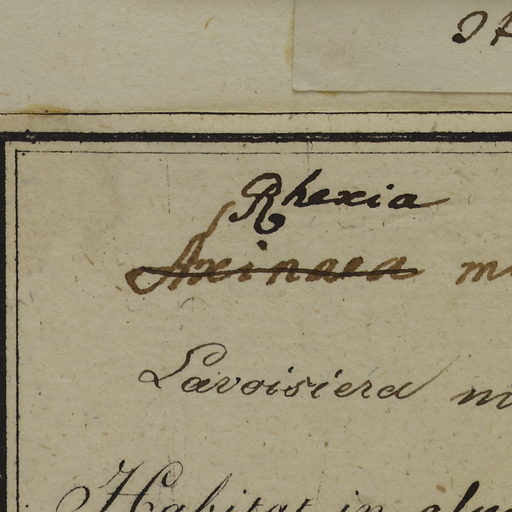 Rhexia
Axinaea m
Lavoisiera m
Habitat in